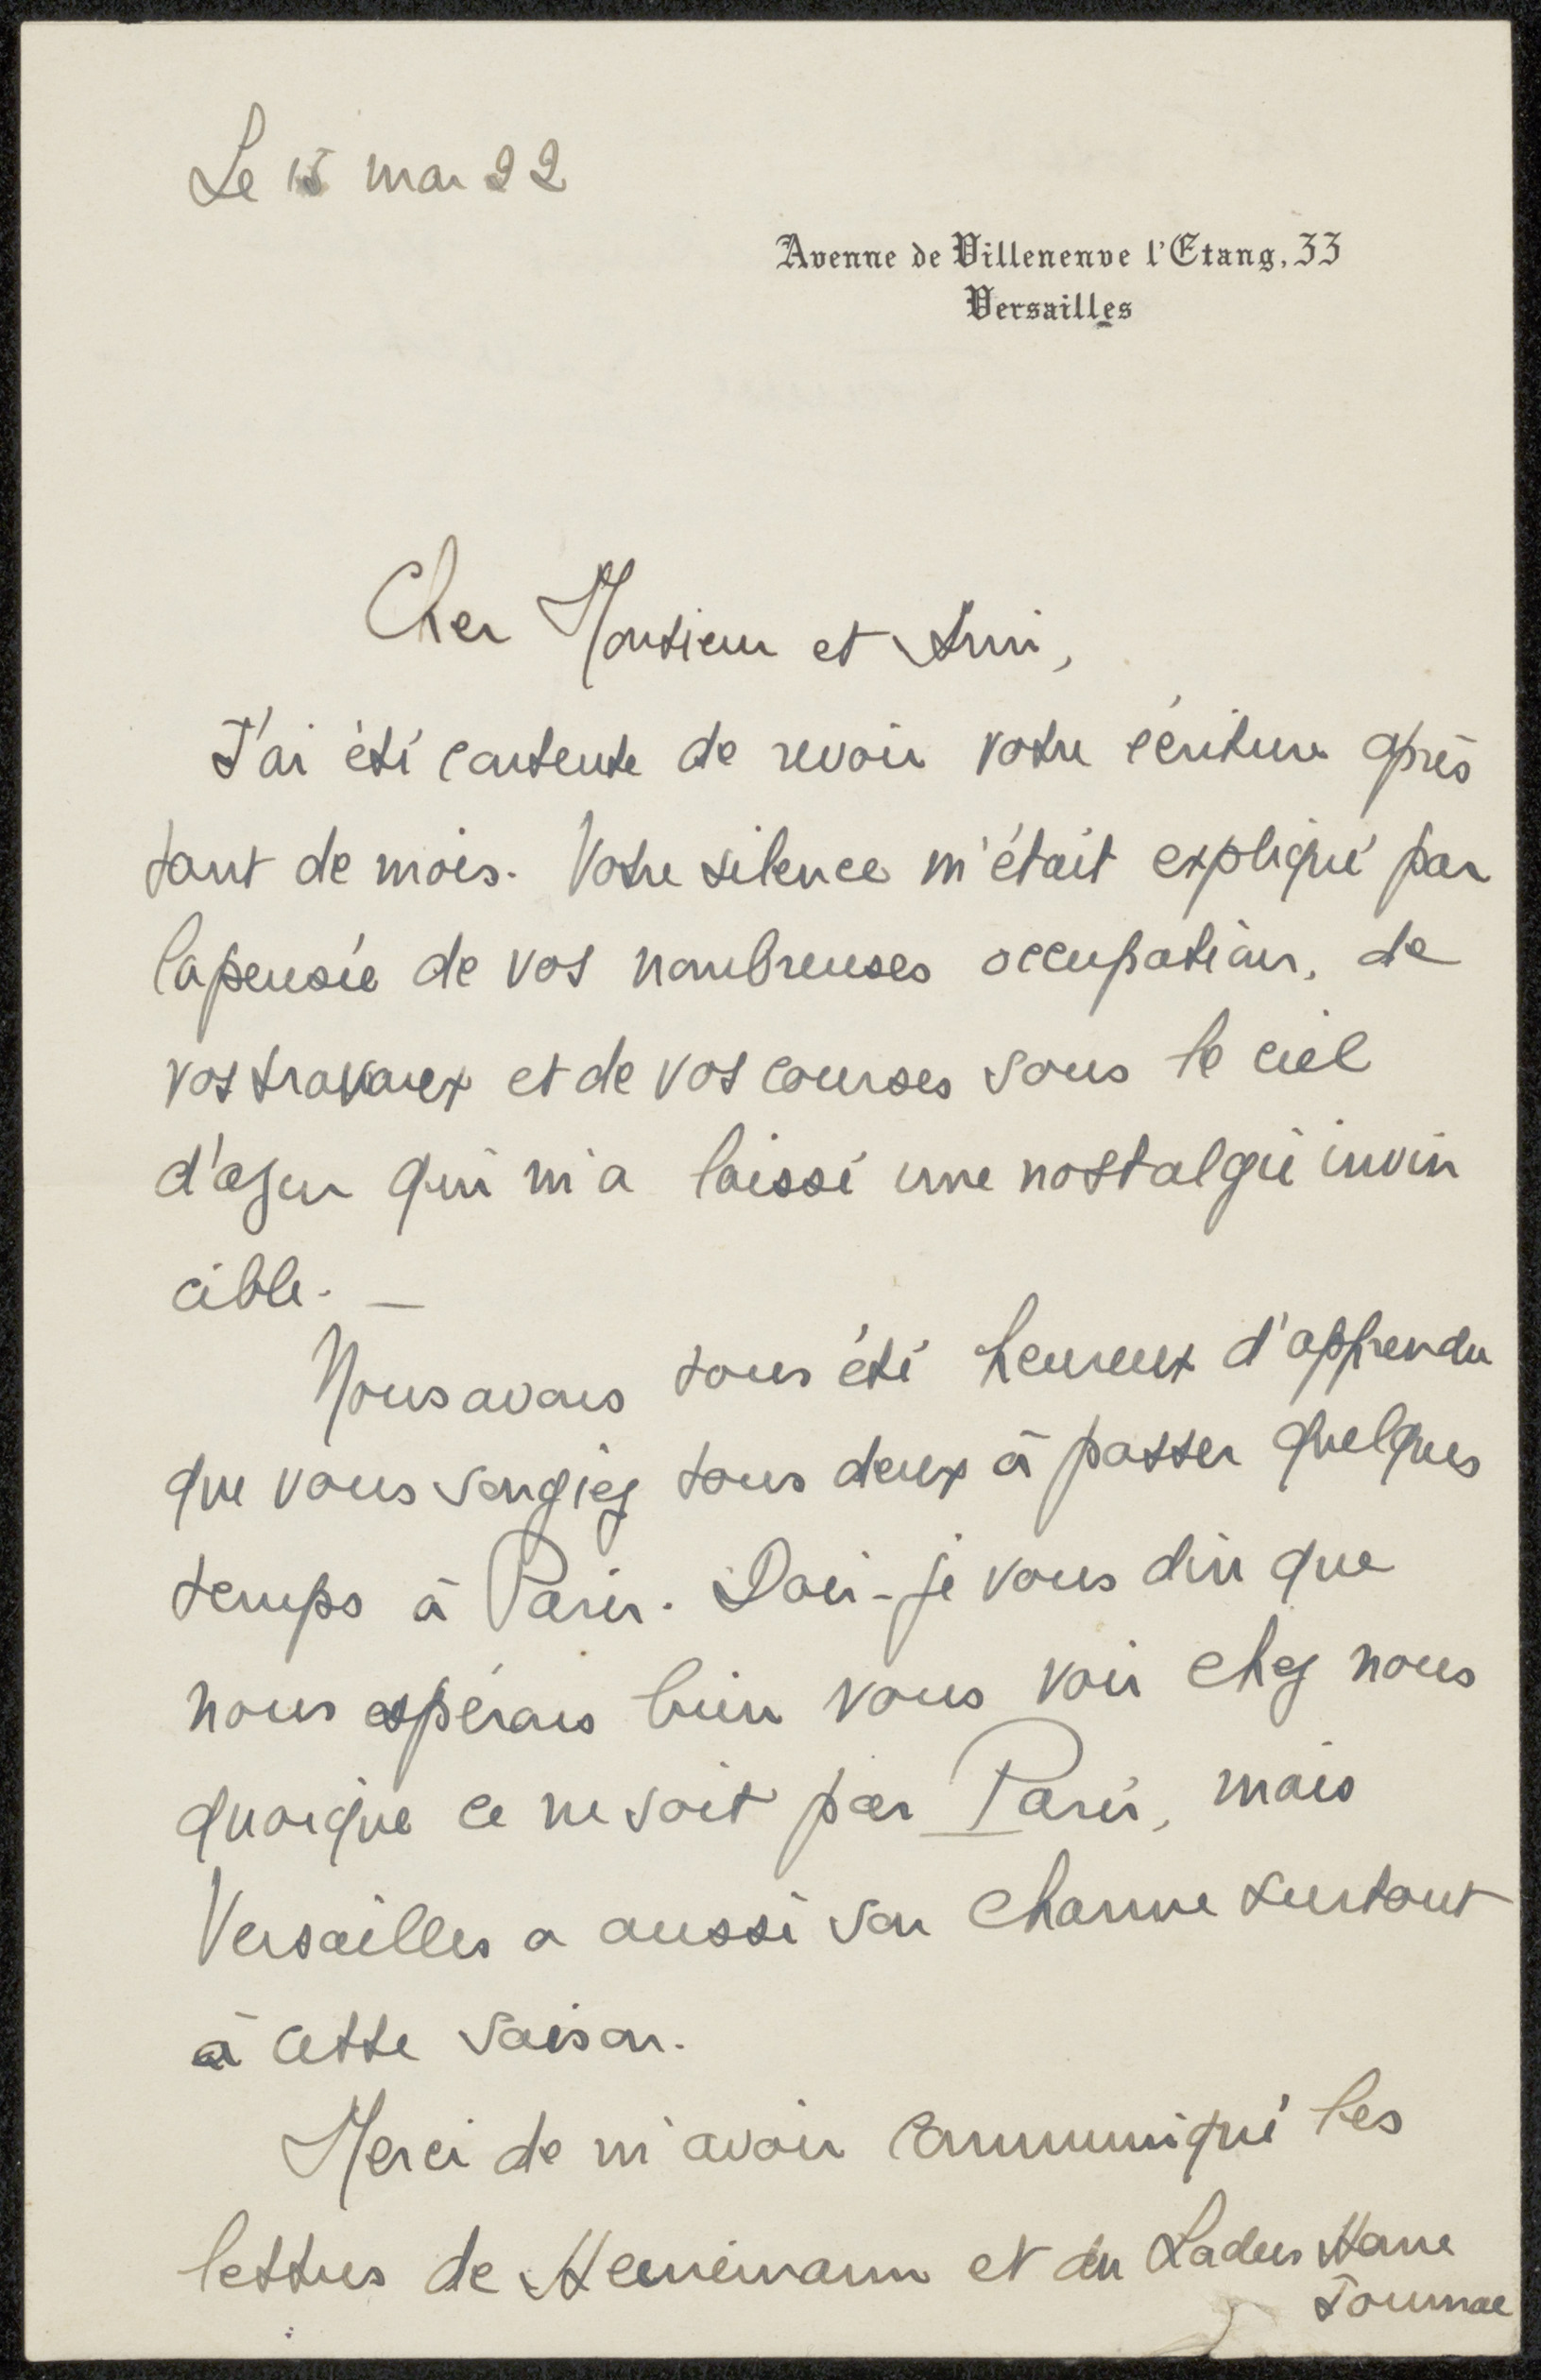 Le 15 mai 22
Avenue de Villeneuve l'Etang, 33
Versailles
Cher Monsieur et Ami,
J'ai été contente de revoir votre écriture après
tant de mois. Votre silence m'était expliqué par
la pensée de vos nombreuses occupations, de
vos travaux et de vos courses sous le ciel
d'azur qui m'a laissé une nostalgie invin
cible. —
Nous avons tous été heureux d'apprendre
que vous songiez tous deux à passer quelques
temps à Paris. Dois-je vous dire que
nous espérons bien vous voir chez nous
quoique ce ne soit pas Paris, mais
Versailles a aussi son charme surtout
à cette saison.
Merci de m'avoir communiqué les
lettres de Heinemann et du Ladies Home
Journal